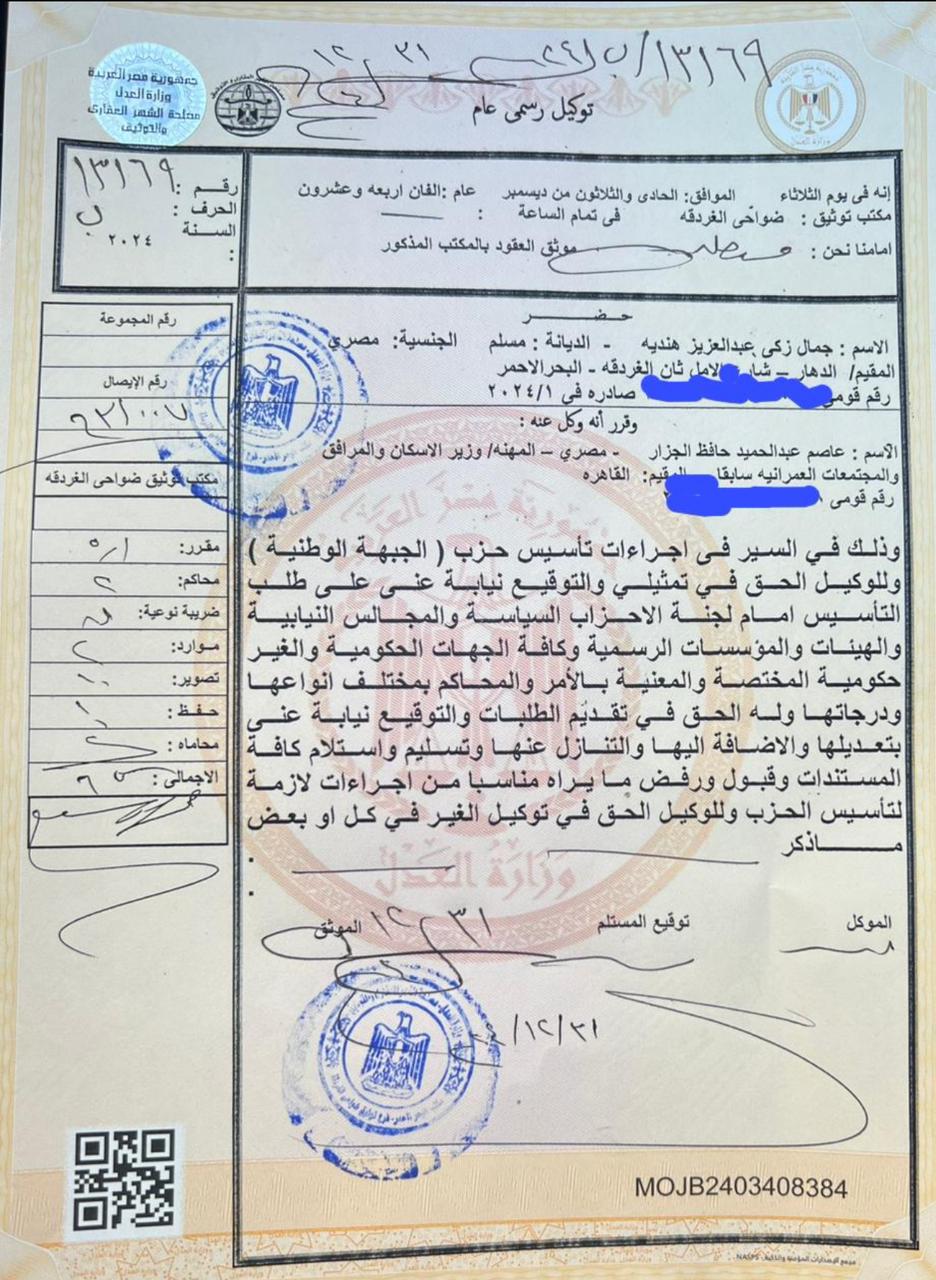 ١٣١٦٩/ب/
١٢ ٣١
جمهورية مصر العربية
وزارة العدل
مصلحة الشهر العقارى
والتوثيق
توكيل رسمى عام
رقم : ١٣١٦٩
الحرف : ب
السنة ٢٠٢٤
:
إنه فى يوم الثلاثاء الموافق: الحادى والثلاثون من ديسمبر عام: الفان اربعه وعشرون
مكتب توثيق : ضواحى الغردقه فى تمام الساعة :
امامنا نحن : موثق العقود بالمكتب المذكور
حضر
الاسم : جمال زكى عبدالعزيز هنديه - الديانة : مسلم الجنسية: مصري
المقيم/ الدهار – شارع الامل ثان الغردقه - البحر الاحمر
رقم قومى صادره فى ٢٠٢٤/١
وقرر أنه وكل عنه :
الاسم : عاصم عبدالحميد حافظ الجزار - مصري – المهنه/ وزير الاسكان والمرافق
والمجتمعات العمرانيه سابقا المقيم: القاهره
رقم قومى
وذلك في السير فى اجراءات تأسيس حزب ( الجبهة الوطنية )
وللوكيل الحق في تمثيلي والتوقيع نيابة عنى على طلب
التأسيس امام لجنة الاحزاب السياسة والمجالس النيابية
والهيئات والمؤسسات الرسمية وكافة الجهات الحكومية والغير
حكومية المختصة والمعنية بالأمر والمحاكم بمختلف انواعها
ودرجاتها وله الحق في تقديم الطلبات والتوقيع نيابة عنى
بتعديلها والاضافة اليها والتنازل عنها وتسليم واستلام كافة
المستندات وقبول ورفض ما يراه مناسبا من اجراءات لازمة
لتأسيس الحزب وللوكيل الحق في توكيل الغير في كل او بعض
ماذكر
رقم المجموعة
رقم الإيصال
مكتب توثيق ضواحى الغردقه
مقرر:
محاكم:
ضريبة نوعية:
موارد:
تصوير:
حفظ :
محاماه :
الاجمالى :
جمهورية مصر العربية
وزارة العدل
الموكل توقيع المستلم الموثق
١٢/٣١
/١٢/٣١
MOJB2403408384
مجمع الإصدارات المؤمنة والذكية NASPS